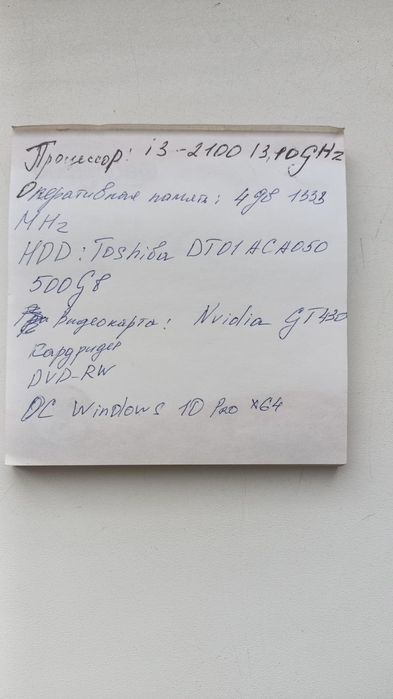 Процессор: i3-2100 13,10GHz
Оперативная память: 4gb 1333
MHz
HDD: Toshiba DT01ACA050
500Gb
Видеокарта: Nvidia GT430
кардридер
DVD-RW
ОС Windows 10 Pro x64